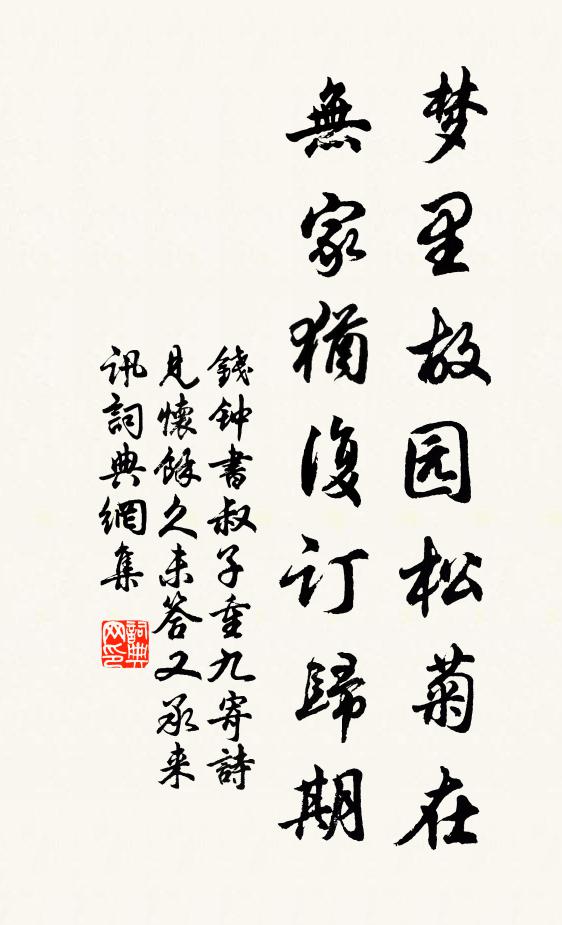 梦里故园松菊在
無家猶復订歸期
錢钟書叔子重九寄詩
見懷餘久未答又承来
訊詞典網集
詞典网印